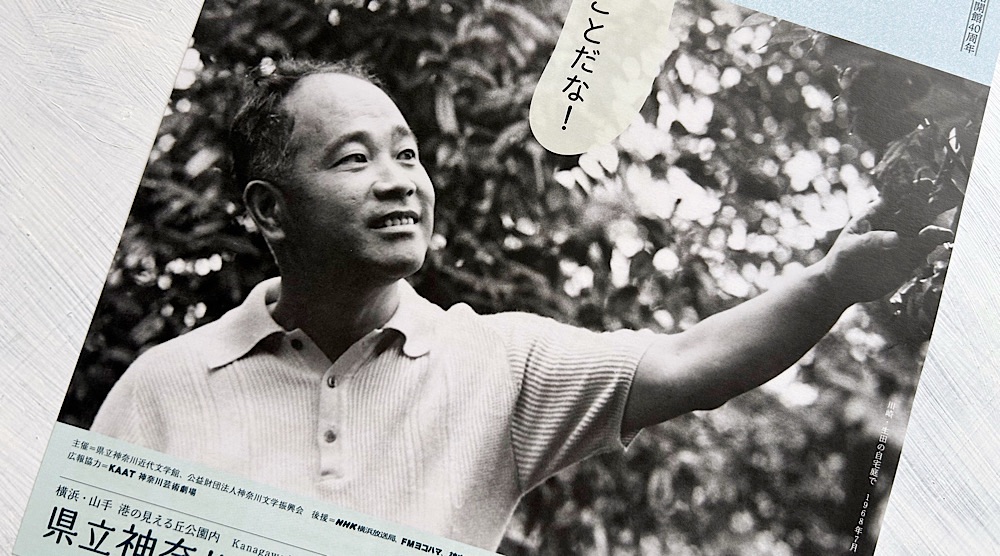 ことだな!
開館40周年
川崎・生田の自宅庭で 1968年7月
主催=県立神奈川近代文学館、公益財団法人神奈川文学振興会 後援=NHK横浜放送局、FMヨコハマ、
広報協力=KAAT 神奈川芸術劇場
横浜・山手 港の見える丘公園内 Kanagawa
県立神奈